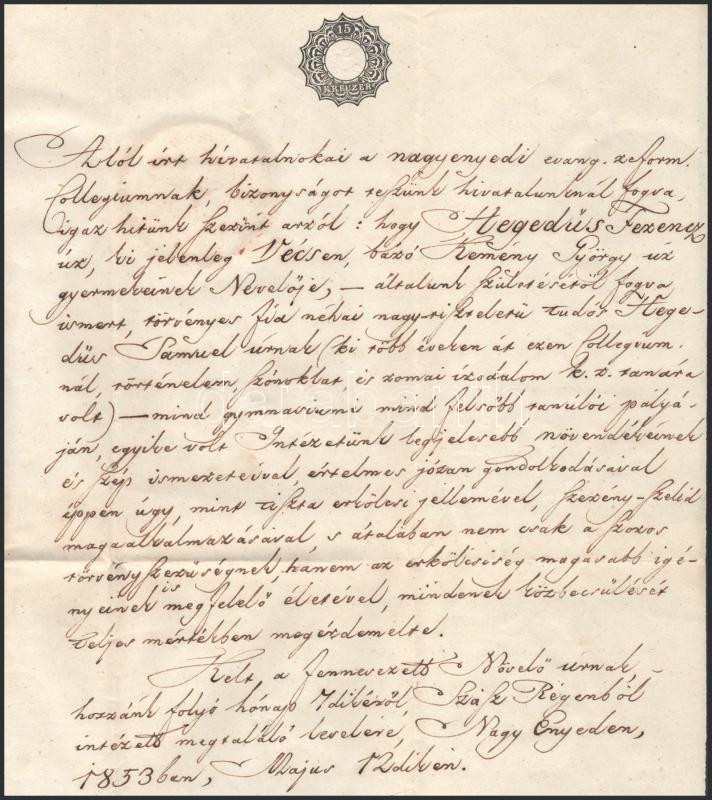 15
KREUZER
Alól írt hivatalnokai a nagyenyedi evang. reform.
Collegiumnak, bizonyságot teszünk hivatalunknál fogva,
igaz hitünk szerint arról: hogy Hegedüs Ferencz
úr, ki jelenleg Vécsen, báró Kemény György úr
gyermekeinek Nevelője, — általunk születésétől fogva
ismert, törvényes fia néhai nagy-tiszteletű tudós Hege-
düs Sámuel urnak (ki több éveken át ezen Collegium-
nál, történelem, szónoklat és romai irodalom k. r. tanára
volt) — mind gymnasiumi mind felsőbb tanulói pályá-
ján, egyike volt Intézetünk legjelesebb növendékeinek
és szép ismereteivel, értelmes józan gondolkodásával
éppen úgy, mint tiszta erkölcsi jellemével, szerény-szelíd
magaalkalmazásával, s átalában nem csak a szoros
törvényszerüségnek, hanem az erkölcsiség magasabb igé-
nyeinek is megfelelő életével, mindenek közbecsülését
teljes mértékben megérdemelte.
Kelt, a fennevezett Növelő úrnak
hozzánk folyó hónap 7dikéről Szász Régenből
intézett megtaláló levelére, Nagy Enyeden,
1853ban, Majus 12dikén.
darabanth